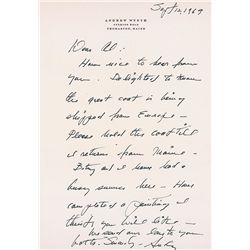 Sept 12, 1969
ANDREW WYETH
CUSHING ROAD
THOMASTON, MAINE
Dear Al:
How nice to hear from
you. Delighted to know
the great coat is being
shipped from Europe —
Please hold this coat till
I return from Maine —
Betsy and I have had a
busy summer here — Have
completed a painting I
think you will like —
We send our love to you
both. Sincerely — Andy